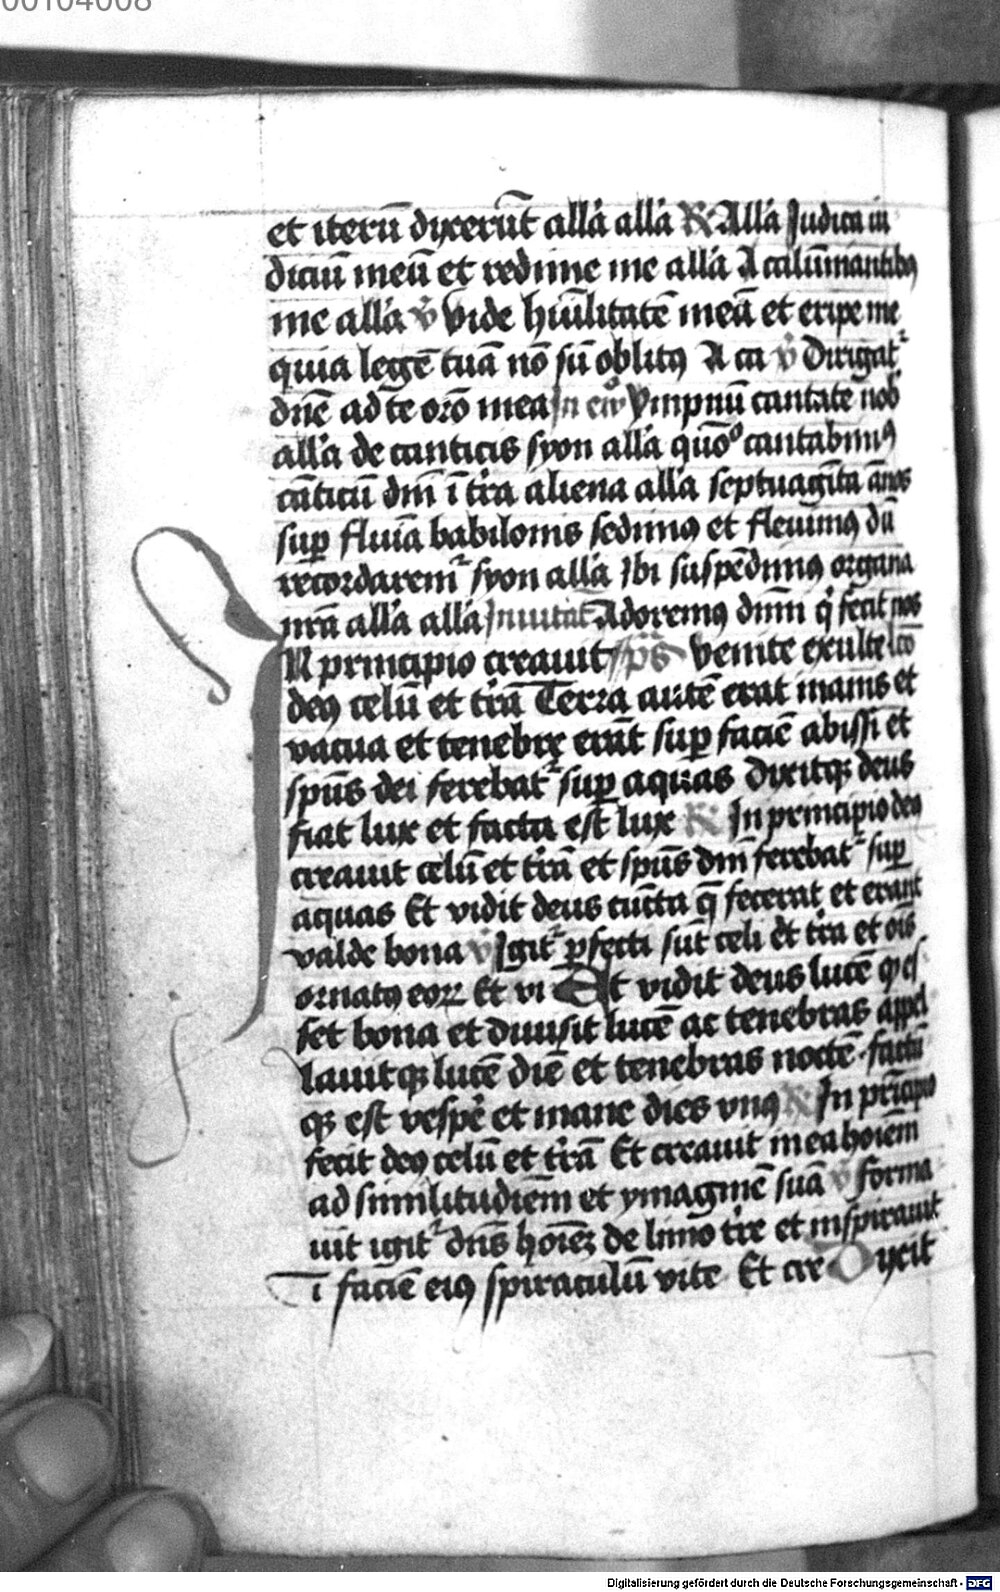 00104008
et iterū dyxerūt allã allã ℟ Allã Judica iu
diciū meū et redime me allã A calūmnantibꝰ
me allã ℣ Vide hūilitatē meã et eripe me
quia legē tuã nō sū oblitꝰ A ca ℣ Dirigat᷑
dñe ad te orõ mea In eũ Ympnū cantate nob
allã de canticis syon allã quõº cantabimꝰ
cãticū dñi ĩ tr̃a aliena allã septuagĩta ãnos
suꝑ fluĩa babilonis sedimꝰ et fleuimꝰ dū
recordarem᷑ syon allã Ibi suspēdimꝰ organa
nr̃a allã allã Inuitat̃ Adoremꝰ dñm q̇ fecit nos
IN principio creauit p̃s Venite exulte
deꝰ celū et tr̃ã Terra autē erat inanis et
vacua et tenebrę erãt suꝑ faciē abissi et
sp̃us dei ferebat᷑ suꝑ aquas Dixitqꝫ deus
fiat lux et facta est lux ℟ In principio deꝰ
creauit celū et tr̃ã et sp̃us dñi ferebat᷑ suꝑ
aquas Et vidit deus cūcta q̃ fecerat et erant
valde bona ℣ Igit᷑ ꝑfecti sūt celi et tr̃a et oĩs
ornatꝰ eoꝝ Et vi Et vidit deus lucē qꝰ es
set bona et diuisit lucē ac tenebras appel
lauitqꝫ lucē diē et tenebras noctē factū
qꝫ est vespẽ et mane dies vnꝰ ℟ In prĩcipio
fecit deꝰ celū et tr̃ã Et creauit in ea hoĩem
ad similitudiēm et ymaginē suã ℣ forma
uit igit᷑ dñs hoĩeꝫ de limo tr̃e et inspirauit
ĩ faciē eiꝰ spiraculū vite Et cre Dycit
Digitalisierung gefördert durch die Deutsche Forschungsgemeinschaft - DFG